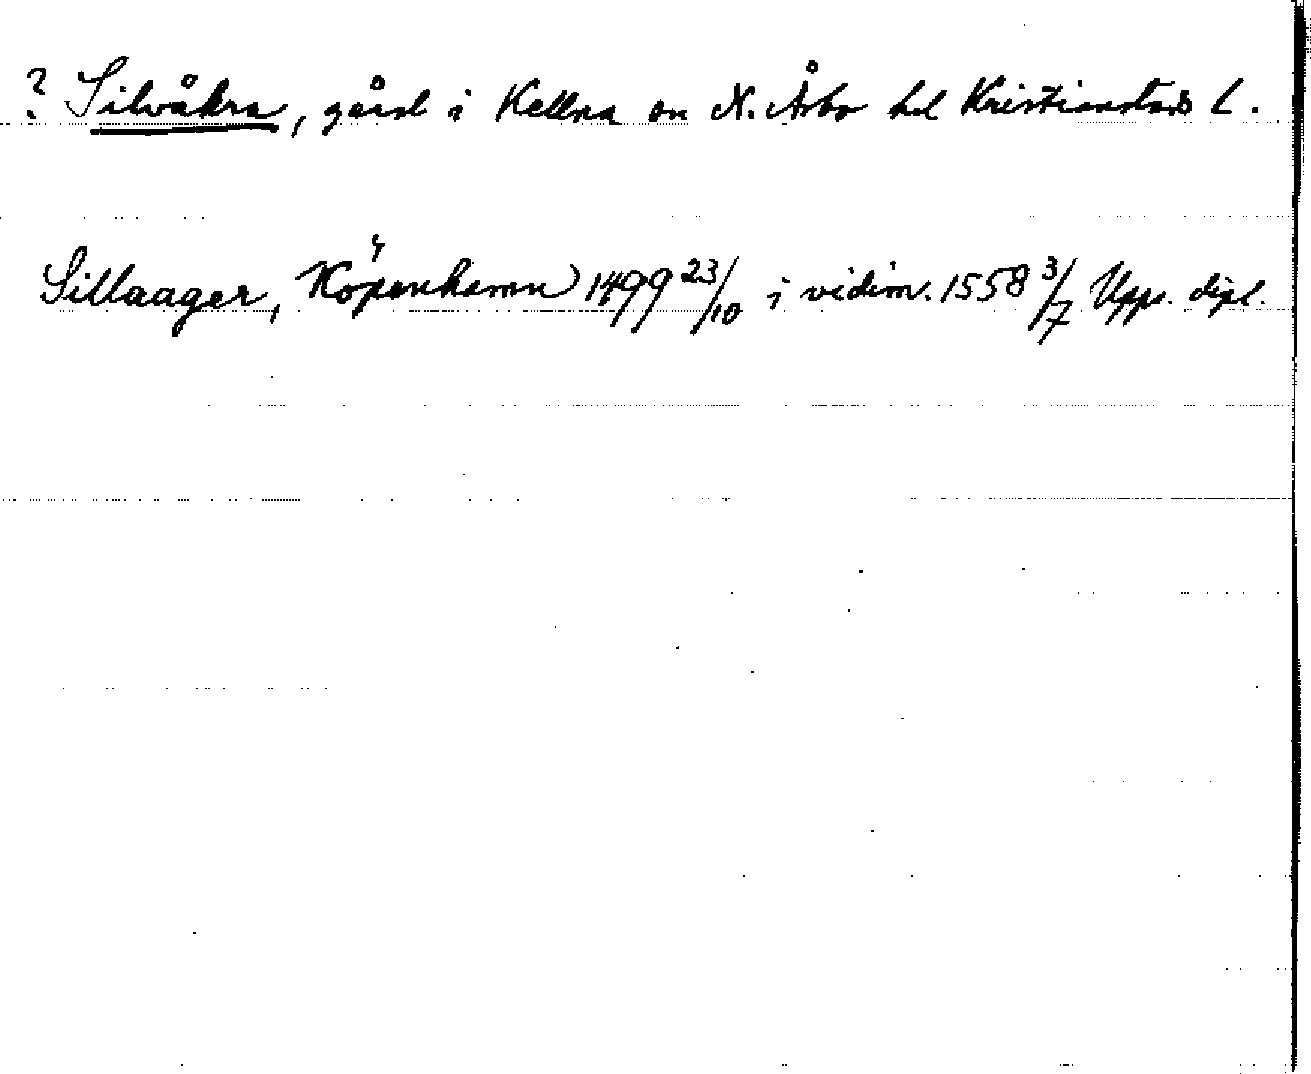 ? Silvåkra, gård i Källna sn N. Åsbo hd Kristianstads l.
Sillaager, Köpenhamn 1499 23/10 i vidim. 1558 3/7 Upps. dipl.